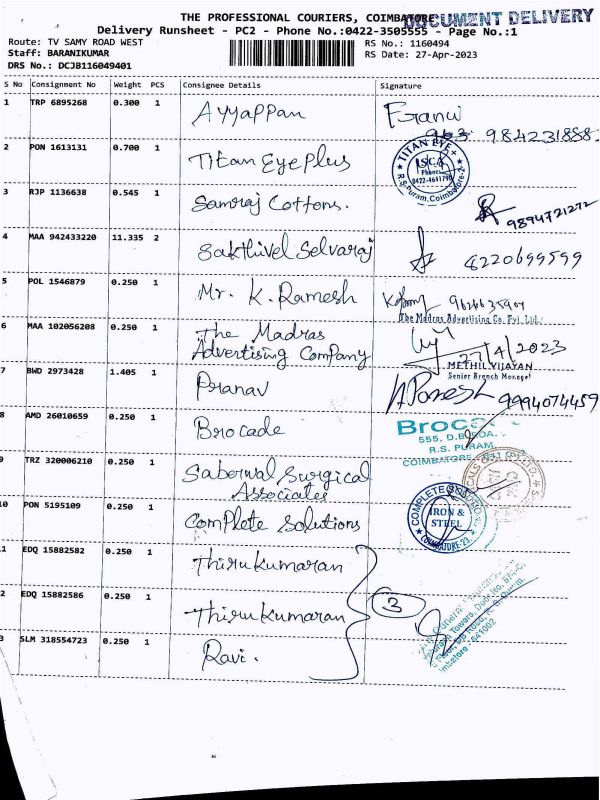 THE PROFESSIONAL COURIERS, COIMBATORE
DOCUMENT DELIVERY
Delivery Runsheet - PC2 - Phone No.:0422-3505555 - Page No.:1
Route: TV SAMY ROAD WEST
RS No.: 1160494
Staff: BARANIKUMAR
RS Date: 27-Apr-2023
DRS No.: DCJB116049401
S No Consignment No Weight PCS Consignee Details Signature
1 TRP 6895268 0.300 1 Ayyappan
984231888
2 PON 1613131 0.700 1 Titan Eye Plus
TITAN EYE+
Phone:
0422-4641790
R.S. Puram, Coimbatore-2
3 RJP 1136638 0.545 1 Samraj Cottons.
9894721272
4 MAA 942433220 11.335 2 Sakthivel Selvaraj 8220699599
5 POL 1546879 0.250 1 Mr. K. Ramesh 9626635904
The Madras Advertising Co. Pvt. Ltd.,
6 MAA 102056208 0.250 1 The Madras
Advertising Company
27/4/2023
METHIL VIJAYAN
Senior Branch Manager
7 BWD 2973428 1.405 1 Pranav 9994074459
8 AMD 26010659 0.250 1 Brocade
555, D.B.
R.S. PURAM,
COIMBATORE
9 TRZ 320006210 0.250 1 Saberwal Surgical
Associates
10 PON 5195109 0.250 1 Complete Solutions
COMPLETE
IRON &
STEEL
COIMBATORE-23
1 EDQ 15882582 0.250 1 Thirukumaran
2 EDQ 15882586 0.250 1 Thirukumaran
3
3 SLM 318554723 0.250 1 Ravi.
641002